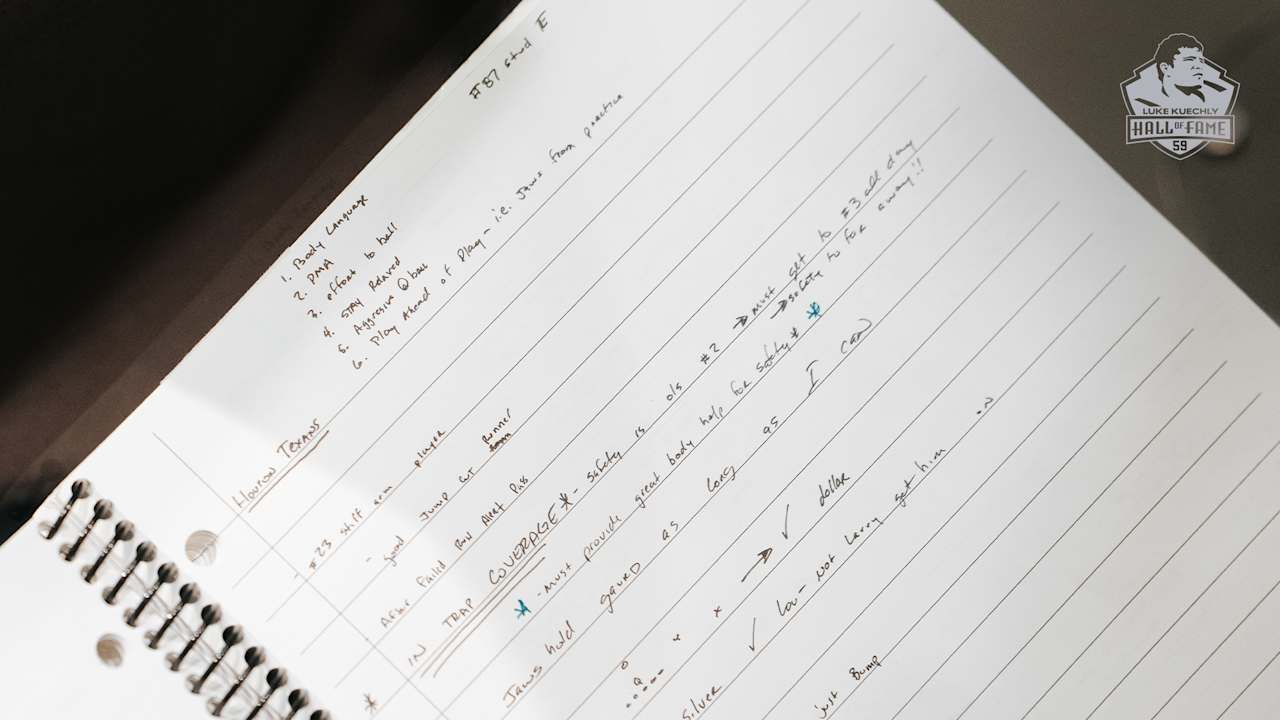 #87 stud E
1. Body Language
2. PMA
3. effort to ball
4. STAY Relaxed
5. Aggresive @ ball
6. Play Ahead of Play - i.e. Jaws from practice
HOUSTON TEXANS
- #23 stiff arm player
- good Jump cut runner
After Failed Run Alert Pass
* IN TRAP COVERAGE * - safety is ols #2 → must get to #3 all day
→ safety to far away!!
* - must provide great body help for safety * *
Jaws hold gaurd as long as I can
x x → ✓ dollar
silver ✓ Lou - not Larry get him in
just Bump
LUKE KUECHLY
HALL OF FAME
59